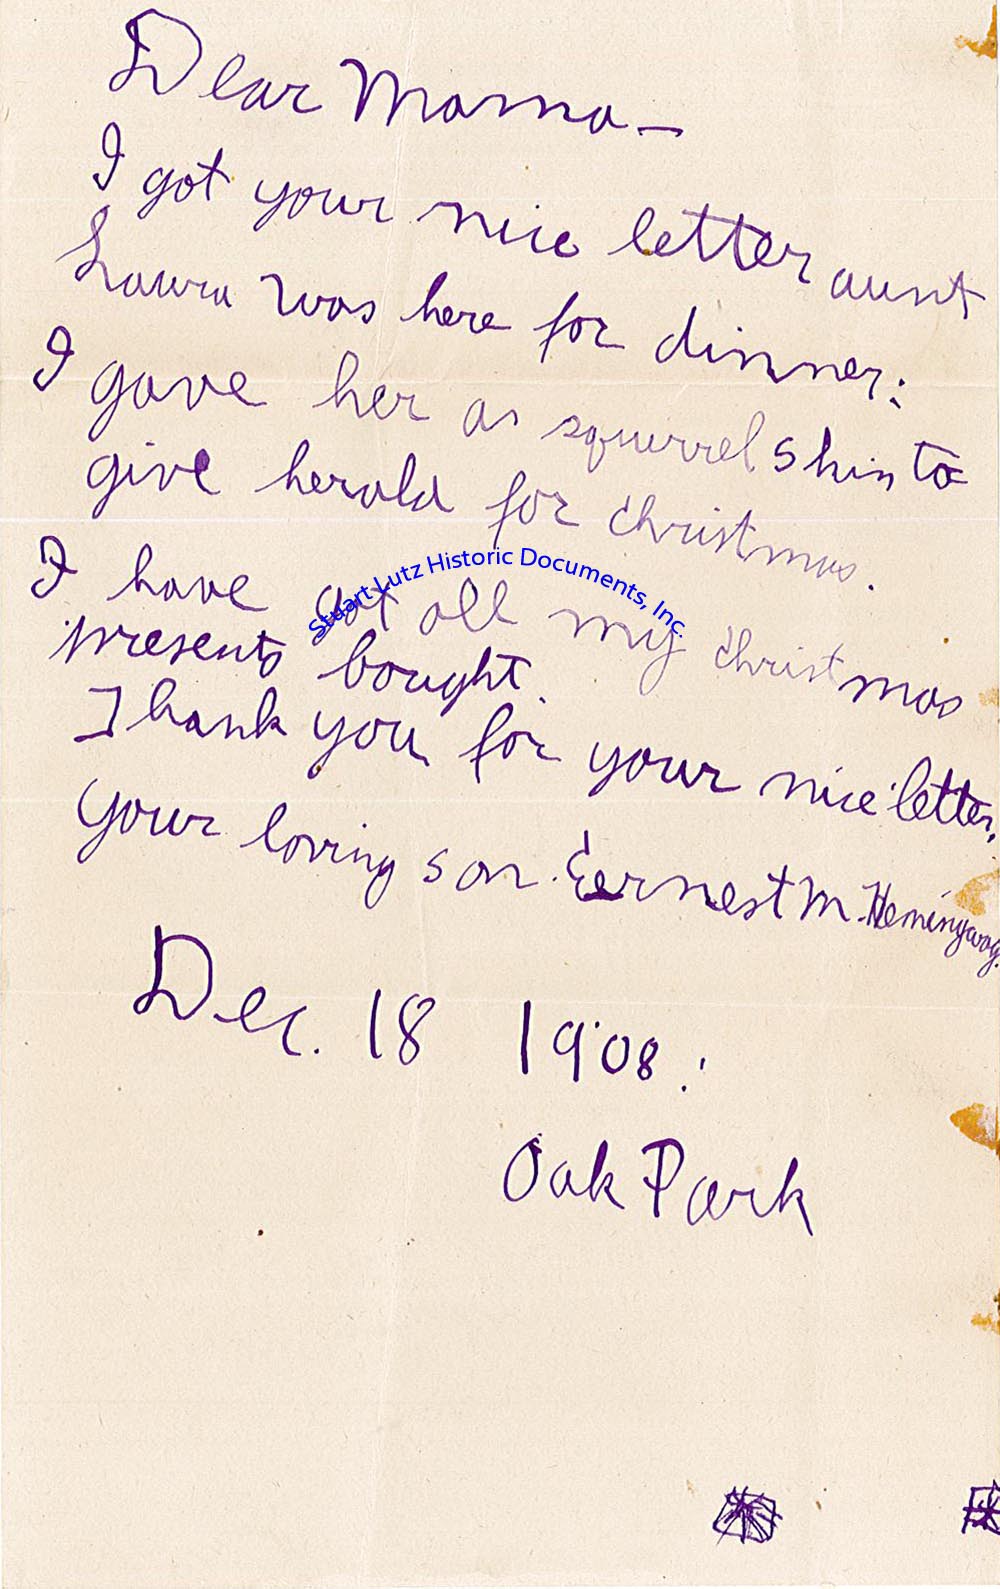 Dear Mama—
I got your nice letter aunt
Laura was here for dinner:
I gave her a squirrel skin to
give herald for christmas.
I have got all my christmas
presents bought.
Thank you for your nice letter,
your loving son. Eernest M. Hemingway.
Dec. 18 1908.
Oak Park
Stuart Lutz Historic Documents, Inc.